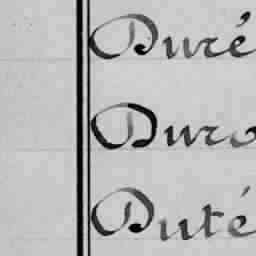 Duré
Duro
Duté